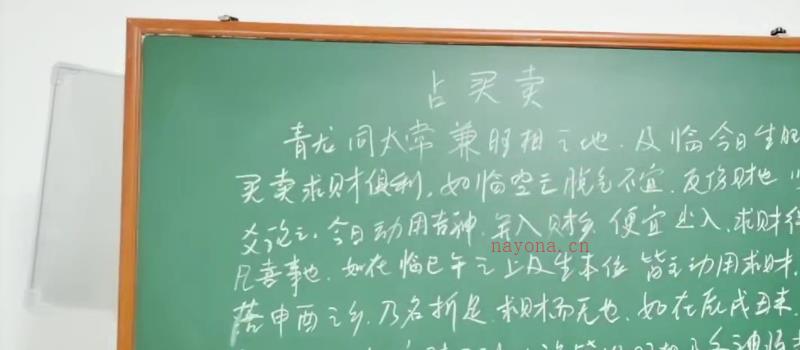 占买卖
青龙同太常兼旺相之地.及临今日生旺
买卖求财俱利,如临空亡脱气不宜.反伤财也
爻论之.今日动用吉神.并入财乡.便宜出入.求财往
nayona.cn
凡喜事也.如在临巳午之上及生本位皆主动用求财.
落申酉之乡.乃名折足.求财而无也.如在辰戌丑未.